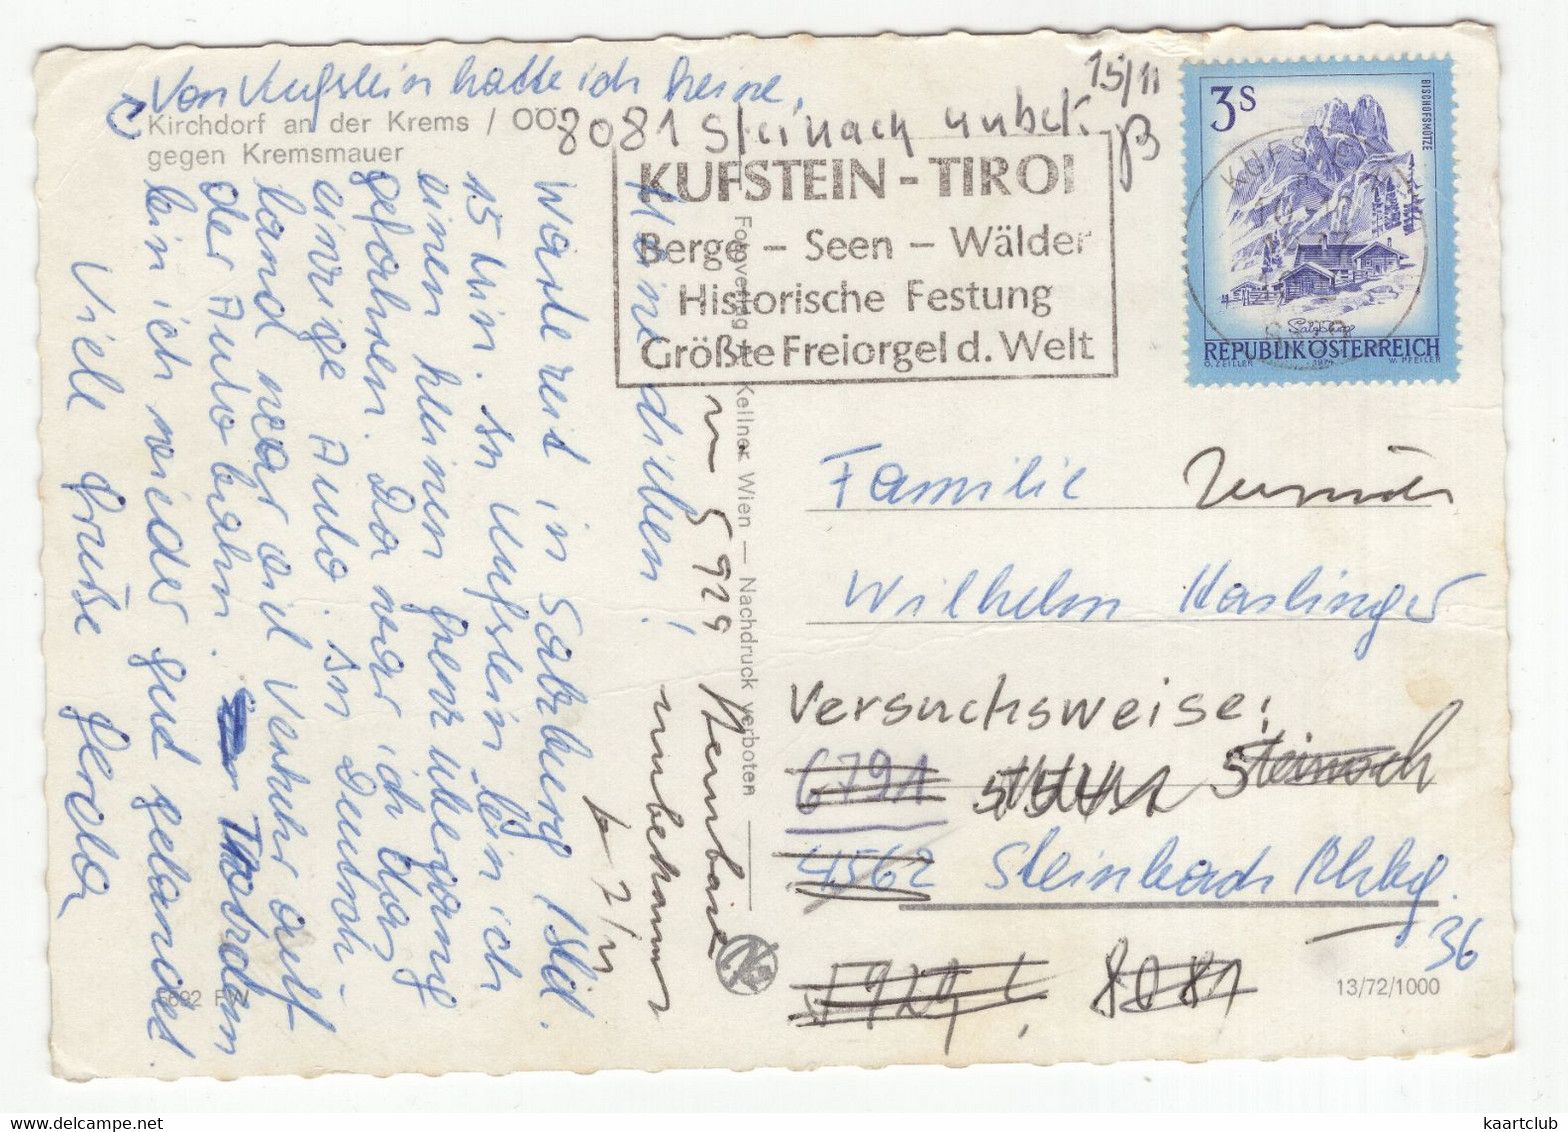 Von Kufstein hatte ich keine,
Kirchdorf an der Krems / OÖ
gegen Kremsmauer
8081 Steinach unbek.
15/11
KUFSTEIN - TIROL
Berge - Seen - Wälder
Historische Festung
Größte Freiorgel d. Welt
3S
BISCHOFSMÜTZE
Salzburg
REPUBLIK ÖSTERREICH
O. ZEILLER 1974 W. PFEILER
KUFSTEIN
Meine Lieben!
Wartezeit in Salzberg 1 Std.
15 Min. In Kufstein bin ich
einen kleinen Grenzübergang
gefahren. Da war ich das
einzige Auto. In Deutsch-
land war viel Verkehr auf
der Autobahn. Trotzdem
bin ich wieder gut gelandet.
Viele Grüße Gerda
5929
unbekannt
Fotoverlag Kellner, Wien — Nachdruck verboten
Familie
Wilhelm Haslinger
Versuchsweise:
6791
Steinach
4562 Steinbach
36
8081
5692 FW
13/72/1000
kaartclub